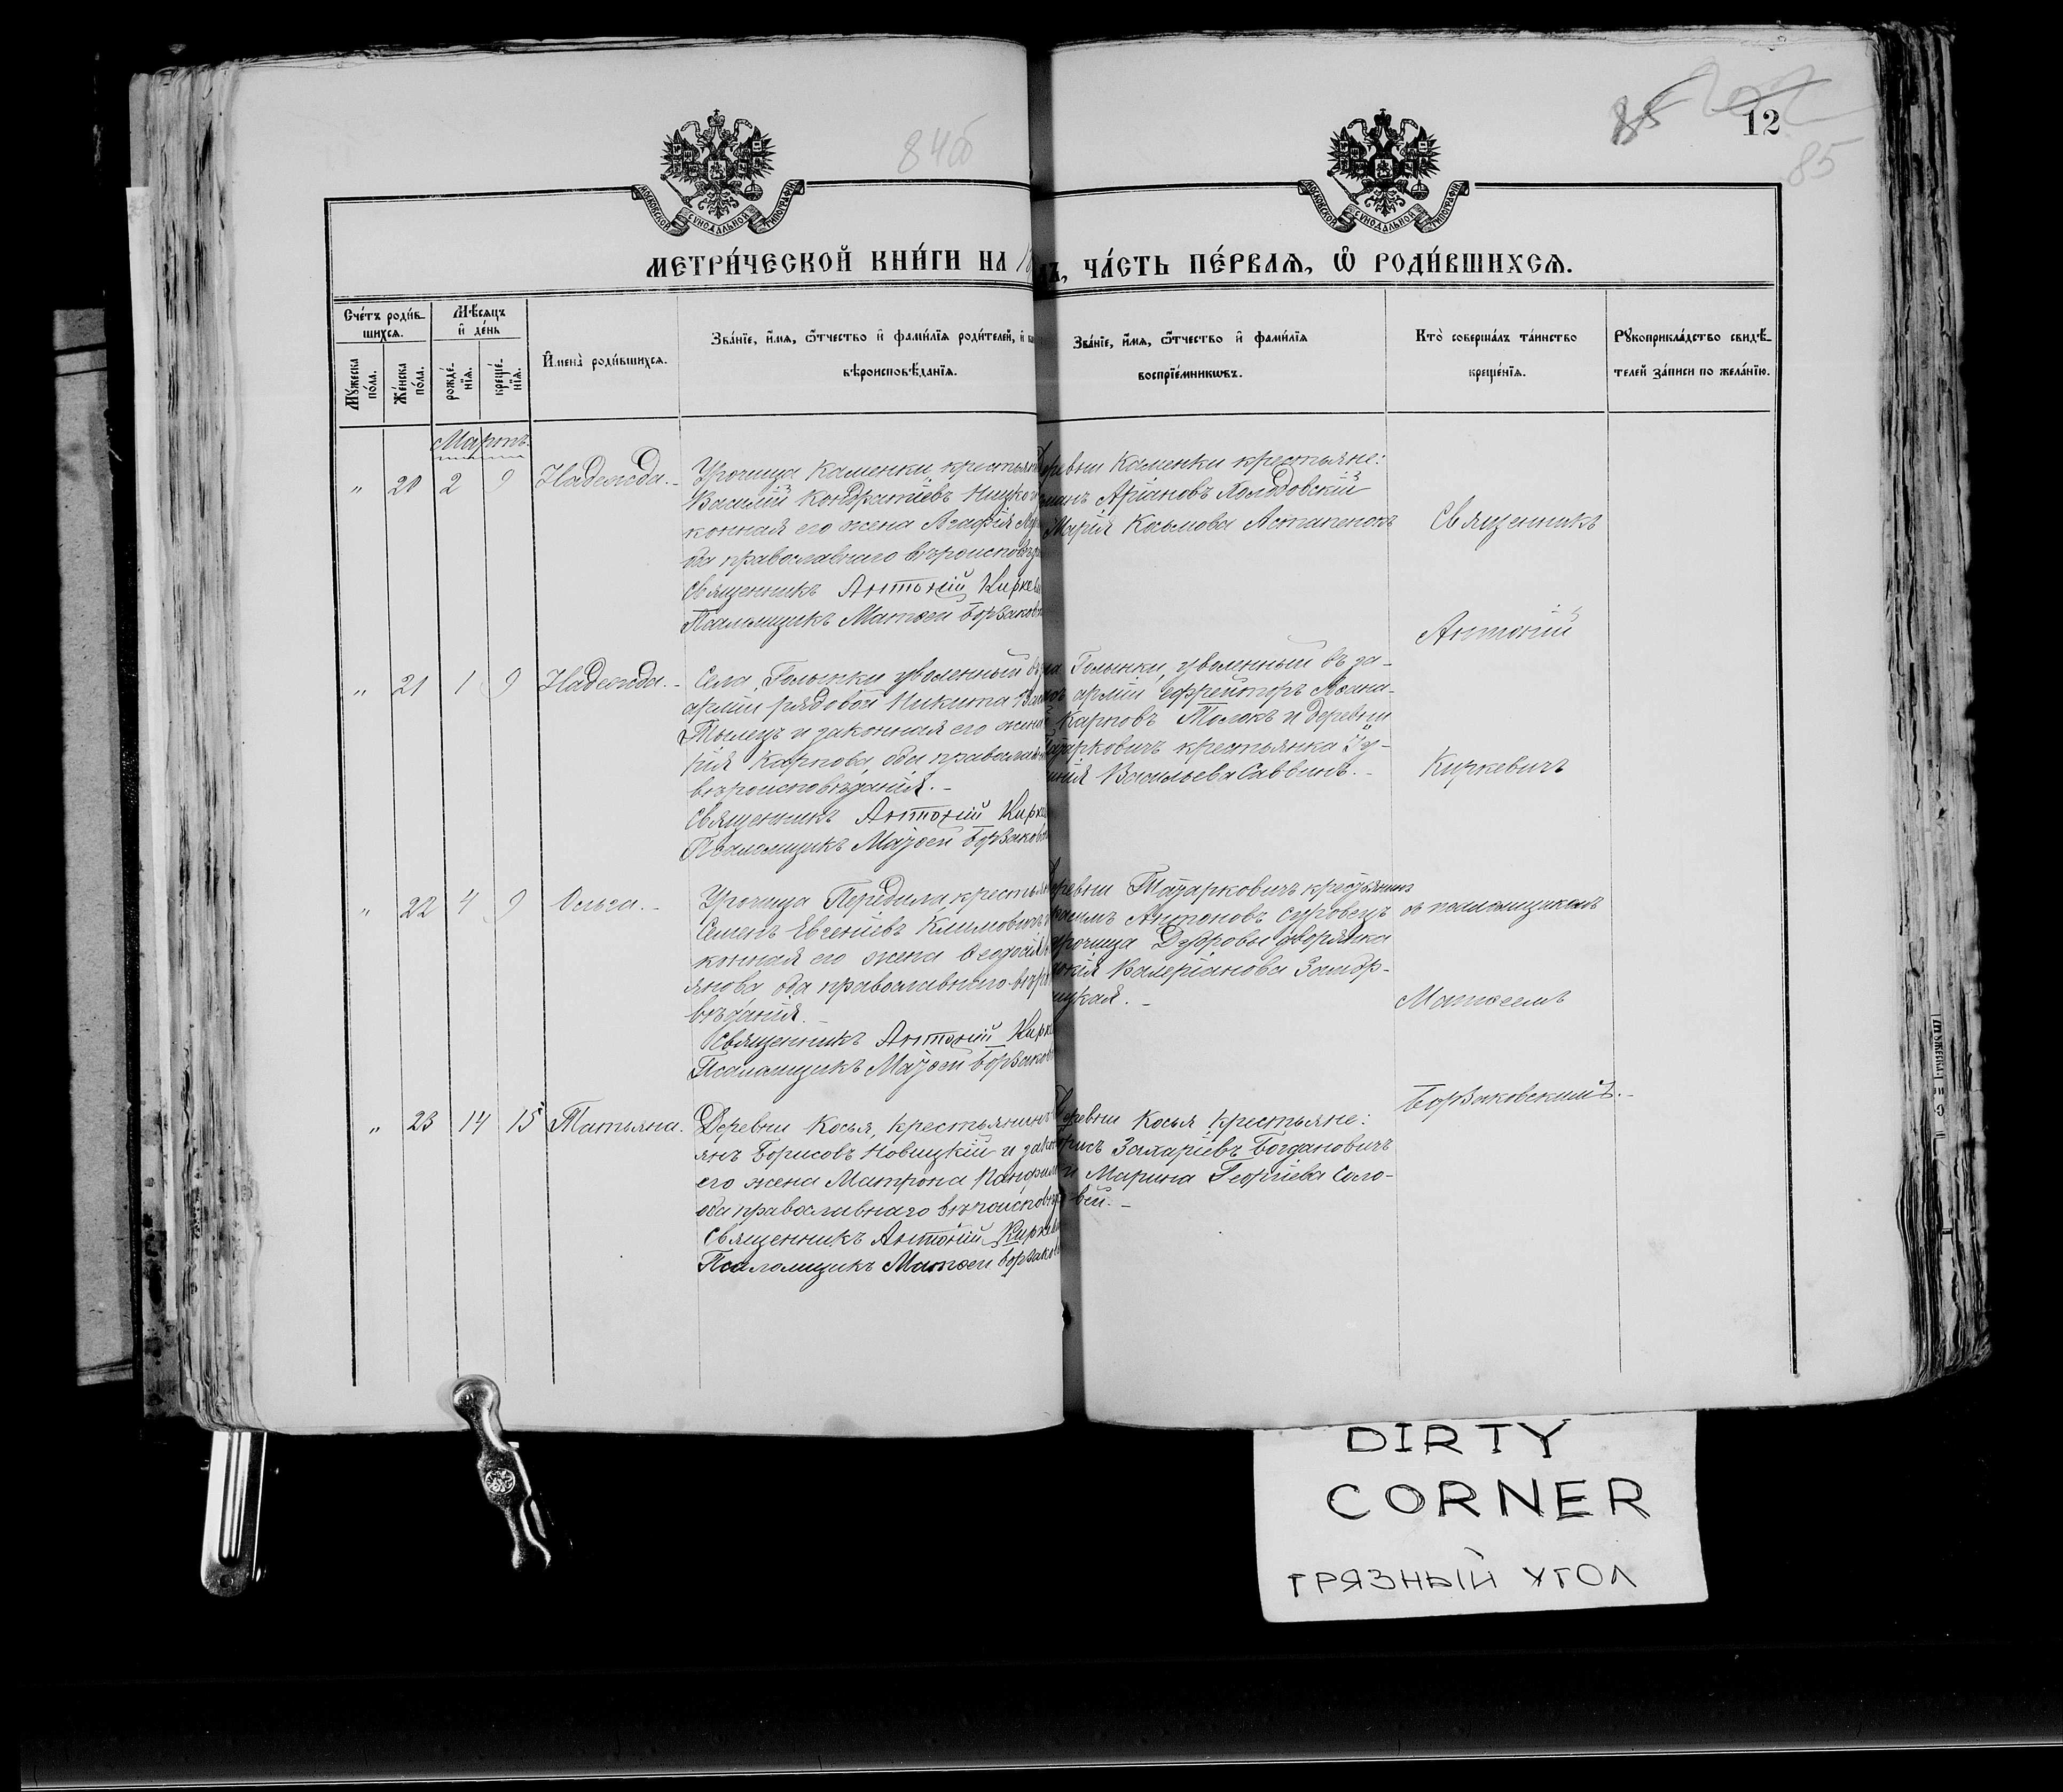 84б
85
12
85
МОСКОВСКОЙ СѴНОДАЛЬНОЙ ТИПОГРАФІИ
МОСКОВСКОЙ СѴНОДАЛЬНОЙ ТИПОГРАФІИ
МЕТРИ́ЧЕСКОЙ КНИ́ГИ НА 18
ДЪ, ЧА́СТЬ ПЕ́РВАЯ, Ѡ РОДИ́ВШИХСЯ.
Счéтъ роди́в-
шихся.
Мѣ́сяцъ
и дéнь
Мꙋ́жеска пóла.
Жéнска пóла.
рождé-
нія.
крещé-
нія.
Именà роди́вшихся.
Звáніе, и́мя, ѻ́тчество и фами́лія роди́телей, и ка
вѣроисповѣ́данія.
Звáніе, и́мя, ѻ́тчество и фами́лія
воспріéмникωвъ.
Ктò совершáлъ тáинство
крещéнія.
Рꙋкоприклáдство свидѣ́-
телей зáписи по желáнію.
Мартъ
" 20 2 9 Надежда.-
Урочища Каменки, крестьян
Василій Кондратіевъ Ницко
конная его жена Агафія
оба православнаго вѣроисповѣд
Священникъ Антоній Кирке
Псаломщикъ Матѳей Борзаков
ревни Каменки крестьяне:
Аріановъ Холодовскій
Марія Косьмова Астапенокъ
Священникъ
Антоній
" 21 1 9 Надежда.-
Села Голынки уволенный въ
арміи рядовой Никита
Тылецъ и законная его жена
рія Карпова, оба православн
вѣроисповѣданія.-
Священникъ Антоній Кирке
Псаломщикъ Матѳей Борзаков
ла Голынки, уволенный въ за-
арміи Ефрейторъ
Карповъ Толокъ и деревни
крестьянка
Васильева Саввинъ.-
Киркевичъ
" 22 4 9 Ольга.-
Урочища Передила крестьян
Семенъ Евгеніевъ Климович
конная его жена Ѳеодосія
янова оба православнаго вѣро
вѣданія.-
Священникъ Антоній Кирк
Псаломщикъ Матѳей Борзаков
ревни крестьянинъ
Антоновъ Суровецъ
рочища Дубровы дворянка
Валеріанова Замбр-
ицкая.-
съ псаломщикомъ
Матѳеемъ
Борзаковскимъ.-
" 23 14 15 Татьяна.
Деревни Косья, крестьянинъ
янъ Борисовъ Новицкій и зако
его жена Матрона Панфил
оба православнаго вѣроисповѣд
Священникъ Антоній Кирке
Псаломщикъ Матѳей Борзаков
еревни Косья крестьяне:
Захаріевъ Богдановичъ
и Марина Георгіева Соло-
вей.-
Мꙋ́жеска.
DIRTY
CORNER
ГРЯЗНЫЙ УГОЛ